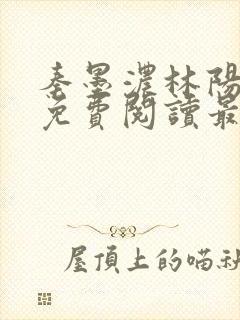 秦墨濃林陽
免費閱讀最
屋頂上的喵社